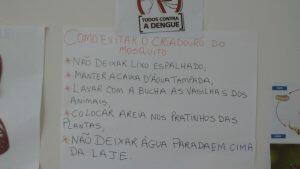 TODOS CONTRA
A DENGUE
COMO EVITAR O CRIADOURO DO
MOSQUITO
* NÃO DEIXAR LIXO ESPALHADO,
* MANTER A CAIXA D'ÁGUA TAMPADA,
* LAVAR COM A BUCHA AS VASILHAS DOS
ANIMAIS,
* COLOCAR AREIA NOS PRATINHOS DAS
PLANTAS,
* NÃO DEIXAR ÁGUA PARADA EM CIMA
DA LAJE.